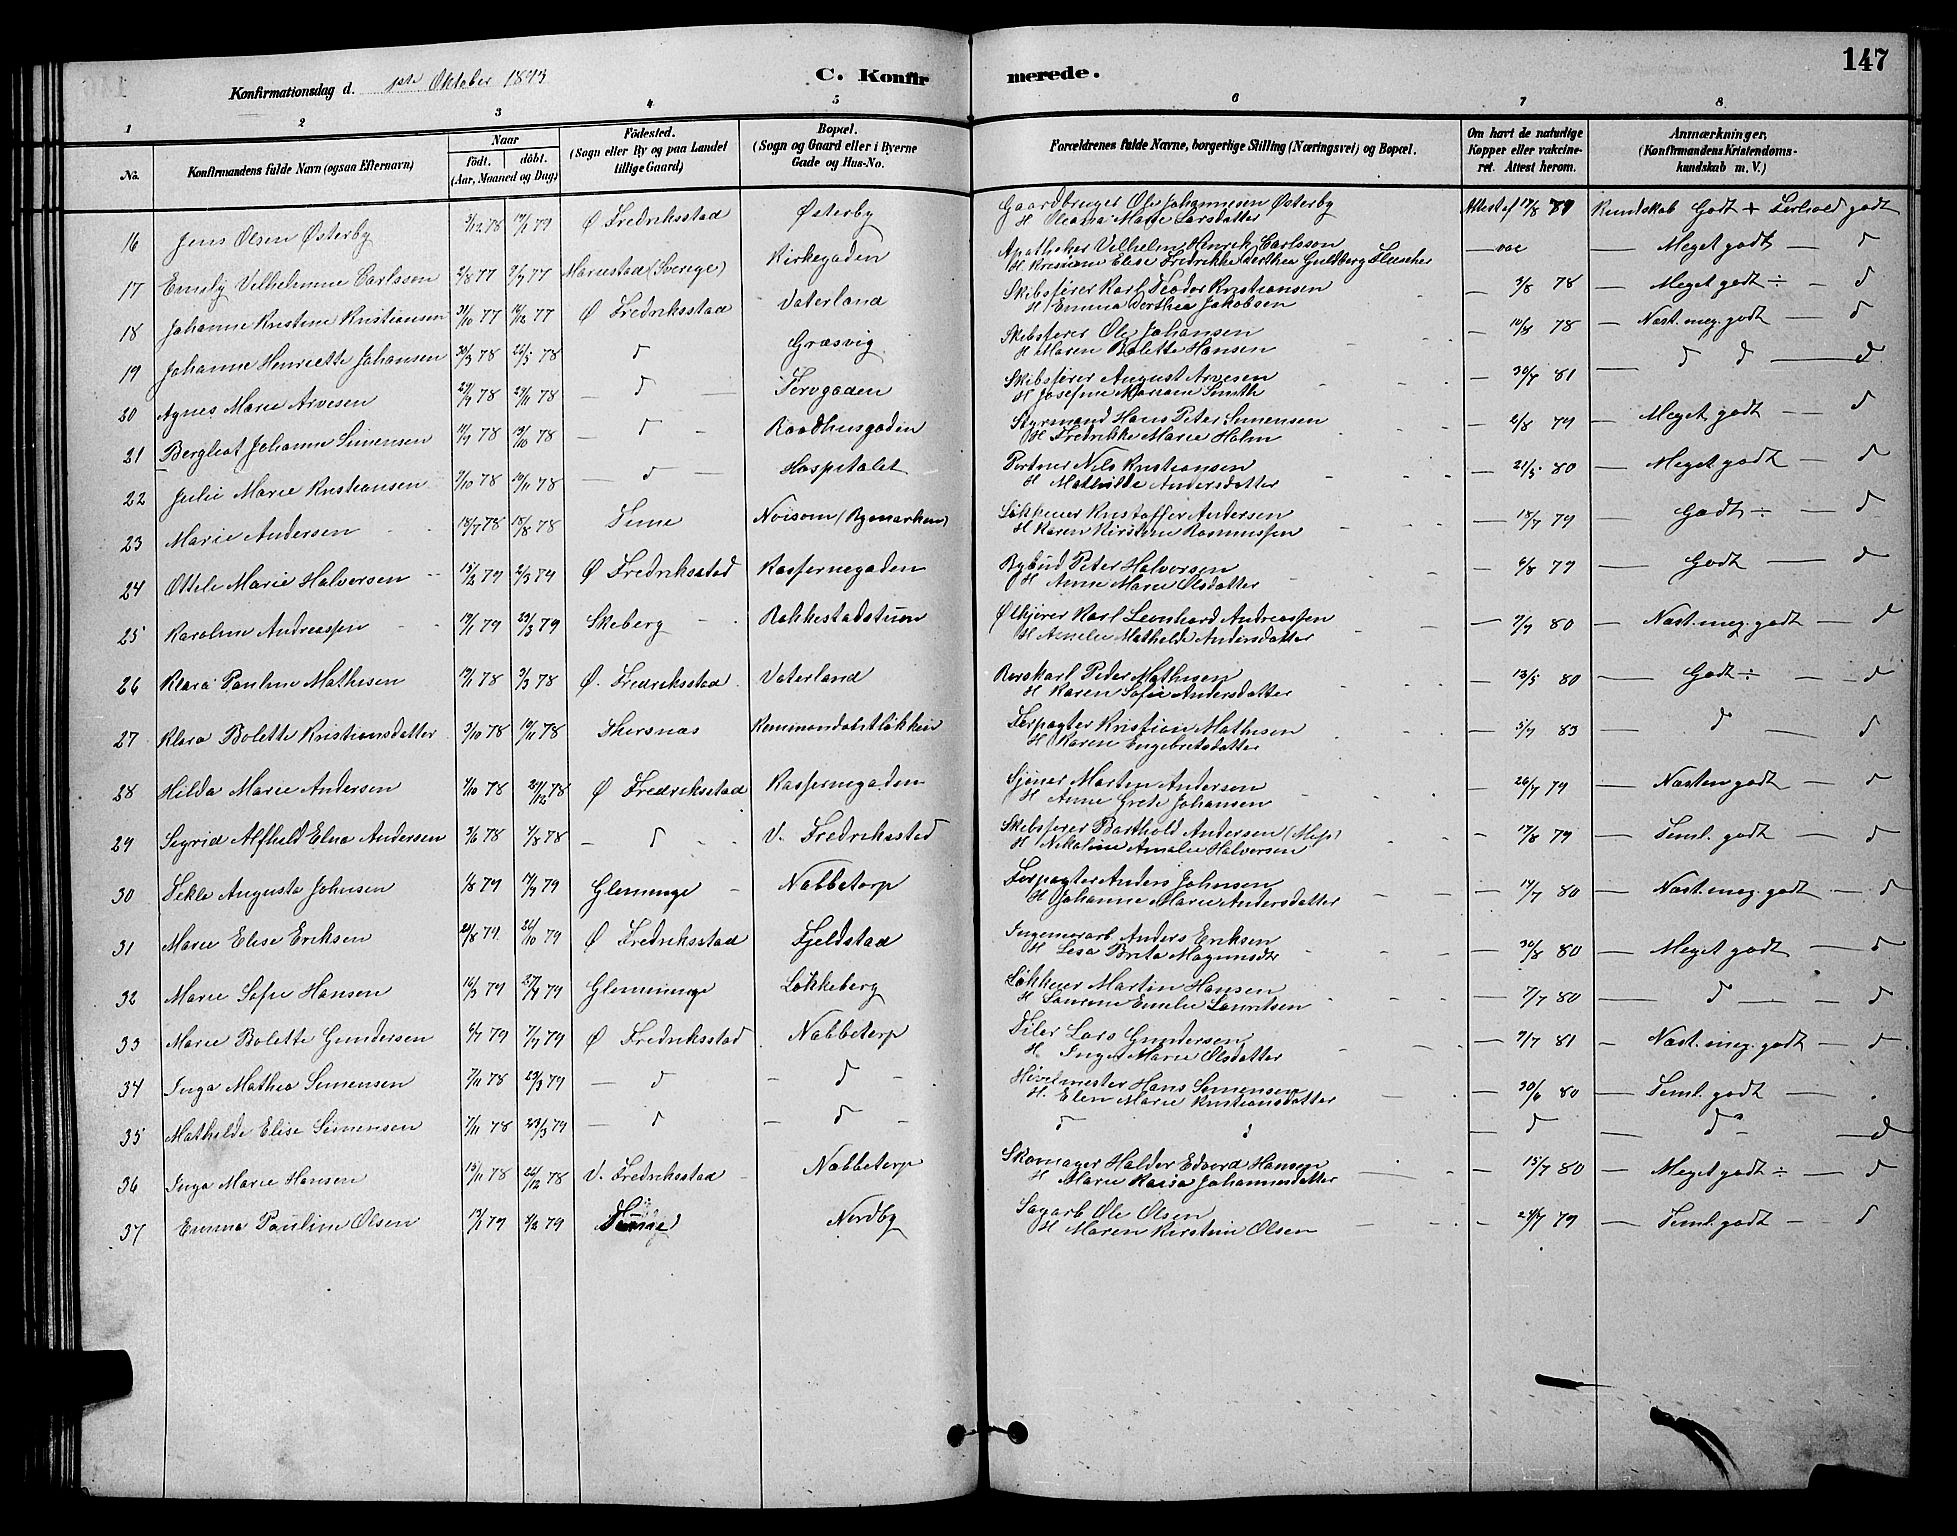 147
Konfirmationsdag d. 1ste Oktober 1893
C. Konfirmerede.
1 2 3 4 5 6 7 8
No. Konfirmandens fulde Navn (ogsaa Efternavn) Naar födt. döbt. (Aar, Maaned og Dag) Födested. (Sogn eller By og paa Landet tillige Gaard) Bopæl. (Sogn og Gaard eller i Byerne Gade og Hus-No. Forældrenes fulde Navne, borgerlige Stilling (Næringsvei) og Bopæl. Om havt de naturlige Kopper eller vakcineret. Attest herom. Anmærkninger. (Konfirmandens Kristendomskundskab m. V.)
16 Jens Olsen Österby 3/12 78 19/1 79 Ø Fredriksstad Østerby Gaardbruger Ole Johannesen Østerby
H Oleana Marie Larsdatter Attest af 17/8 89 Kundskab Godt + Forhold godt
17 Emely Vilhelmine Carlsson 2/8 77 7/9 77 Mariestad (Sverige) Kirkegaden Apotheker Vilhelm Henrik Carlsson
H Kristiane Elise Fredrikke Dorthea Guldberg Fleischer — vac — Meget godt — d
18 Johanne Kristine Kristiansen 31/10 77 16/12 77 Ø Fredriksstad Vaterland Skibsfører Karl Teodor Kristiansen
H Emma Dorthea Jakobsen — 3/8 78 — Meget godt ÷ — d
19 Johanne Henriette Johansen 30/3 78 26/5 78 d Græsvig Skibsfører Ole Johansen
H Maren Bolette Hansen — 10/8 78 — Næst. meg. godt — d
20 Agnes Marie Arvesen 29/9 78 24/11 78 — d — Torvgaden Skibsfører August Arvesen
H Josefine Mariane Smith — 30/7 81 — d d — d
21 Bergliot Johanne Simensen 11/9 78 13/10 78 — d — Raadhusgaden Styrmand Hans Peter Simensen
H Fredrikke Marie Holm — 2/8 79 — Meget godt — d
22 Julie Marie Kristiansen 7/10 78 10/11 78 — d — Hospitalet Portner Nils Kristiansen
H Mathilde Andersdatter — 21/5 80 — Meget godt — d
23 Marie Andersen 18/7 78 18/8 78 Tune Noisom (Bymarken) Løkkeier Kristoffer Andersen
H Karen Kirstine Rasmussen — 18/7 79 — Godt ÷ — d
24 Ottele Marie Halvorsen 15/2 79 2/3 79 Ø Fredriksstad Kasernegaden Bybud Peter Halvorsen
H Anne Marie Olsdatter — 6/8 79 — Godt — d
25 Karoline Andreassen 19/1 79 23/3 79 Skeberg Rakkestadstuen Ølkjører Karl Leonhard Andreassen
H Amelie Mathilde Andersdatter — 7/7 80 — Næst. meg. godt — d
26 Klara Pauline Mathisen 19/1 78 3/3 78 Ø. Fredriksstad Vaterland Rorskarl Peder Mathisen
H Karen Sofie Andersdatter — 13/5 80 — Godt ÷ — d
27 Klara Bolette Kristiansdatter 3/10 78 10/11 78 Thorsnæs Forpagter Kristian Mathisen
H Karen Engebretsdatter — 5/7 83 — d — d
28 Hilda Marie Andersen 4/10 78 29/12 78 Ø Fredriksstad Kasernegaden Morten Andersen
H Anne Grete Johansen — 26/7 79 — Næsten godt — d
29 Sigrid Alfhild Elna Andersen 3/6 78 7/8 78 — d V. Fredriksstad Skibsfører Barthold Andersen
H Nikoline Amalie Halvorsen — 17/8 79 — Teml. godt — d
30 Tekla Augusta Johnsen 1/8 79 17/9 79 Glemminge Nabbetorp Forpagter Anders Johnsen
H Johanne Marie Andersdatter — 14/7 80 — Næst. meg. godt — d
31 Marie Elise Eriksen 21/8 79 26/10 79 Ø Fredriksstad Fjeldstad Anders Eriksen
H Lisa Brita Magnusdtr — 30/8 80 — Meget godt — d
32 Marie Sofie Hansen 16/3 79 27/4 79 Glemminge Løkkeberg Løkkeier Martin Hansen
H Laurine Emelie Lauritsen — 7/7 80 — d — d
33 Marie Bolette Gundersen 6/7 79 7/9 79 Ø Fredriksstad Nabbetorp Filer Lars Gundersen
H. Inger Marie Olsdatter — 7/7 81 — Næst. meg. godt — d
34 Inga Mathea Simensen 7/11 78 23/3 79 — d — d — Høvelmester Hans Simensen
H. Elen Marie Kristiansdatter — 30/6 80 — Teml. godt —
35 Mathilde Elise Simensen 7/11 78 23/3 79 — d — d — d d — d — do — d
36 Inga Marie Hansen 15/11 78 26/12 78 V. Fredriksstad Nabbetorp Skomager Haldor Edvard Hansen
H Marie Kaisa Johannesdatter — 15/7 80 — Meget godt ÷ — d
37 Emma Pauline Olsen 13/1 79 2/2 79 Nordby Sagarb Ole Olsen
H Maren Kirstine Olsen — 24/7 79 — Teml. godt — d